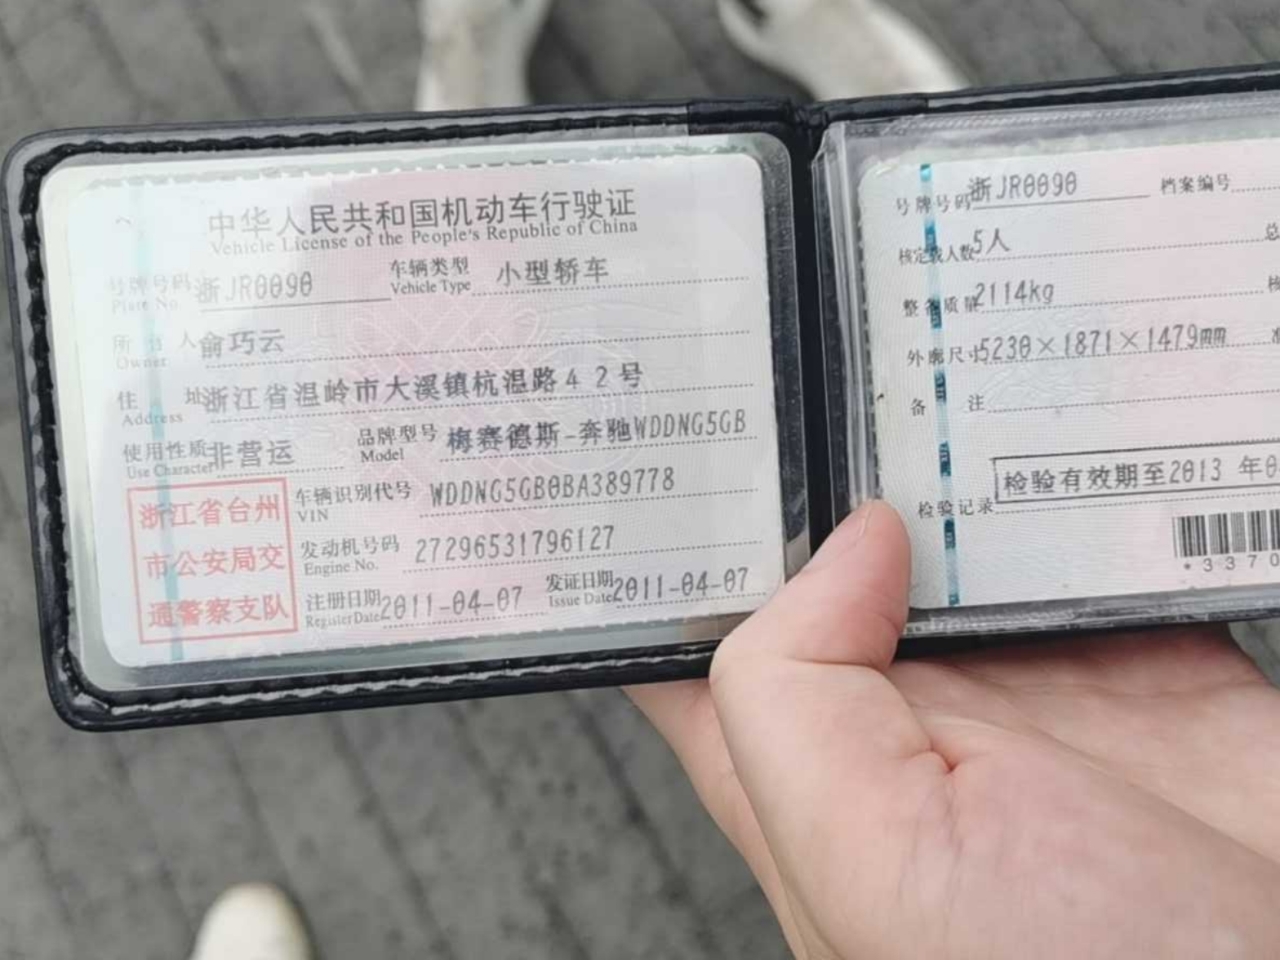 中华人民共和国机动车行驶证
Vehicle License of the People's Republic of China
号牌号码 浙JR0090 车辆类型 小型轿车
Plate No. Vehicle Type
所有人 俞巧云
Owner
住址 浙江省温岭市大溪镇杭温路42号
Address
使用性质 非营运 品牌型号 梅赛德斯-奔驰WDDNG5GB
Use Character Model
浙江省台州
市公安局交
通警察支队
车辆识别代号 WDDNG5GB0BA389778
VIN
发动机号码 27296531796127
Engine No.
注册日期 2011-04-07 发证日期 2011-04-07
Register Date Issue Date
号牌号码 浙JR0090 档案编号
核定载人数 5人 总
整备质量 2114kg 核
外廓尺寸 5230×1871×1479mm
备注
检验有效期至2013 年0
检验记录
*3370